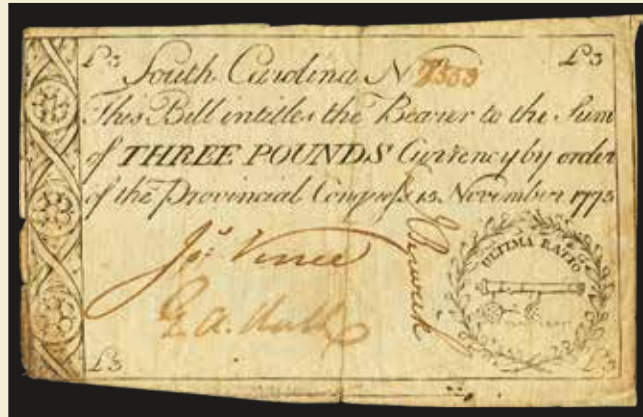 £3 £3
South Carolina No
This Bill intitles the Bearer to the Sum
of THREE POUNDS Currency by order
of the Provincial Congress 15. November 1775
ULTIMA RATIO
£3 £3